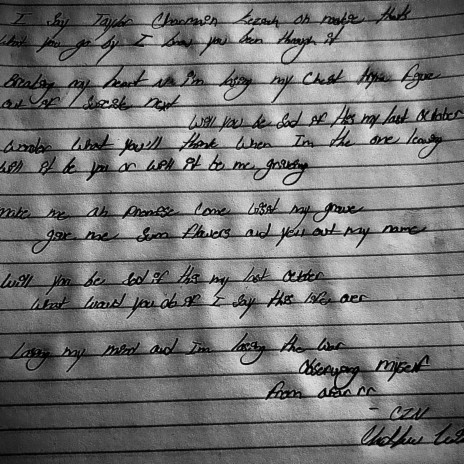 I Say Taylor
what you go by I know you been through it
Breaking my heart I'm losing my chest
out of suicide next
Will you be Sad if this my last October
wonder what you'll think when I'm the one leaving
will it be you or will it be me grieving
make me an promise come visit my grave
give me some flowers and yell out my name
Will you be Sad if this my last October
what would you do if I Say this life over
Losing my mind and I'm losing the war
Observing myself
from afar
- CZN